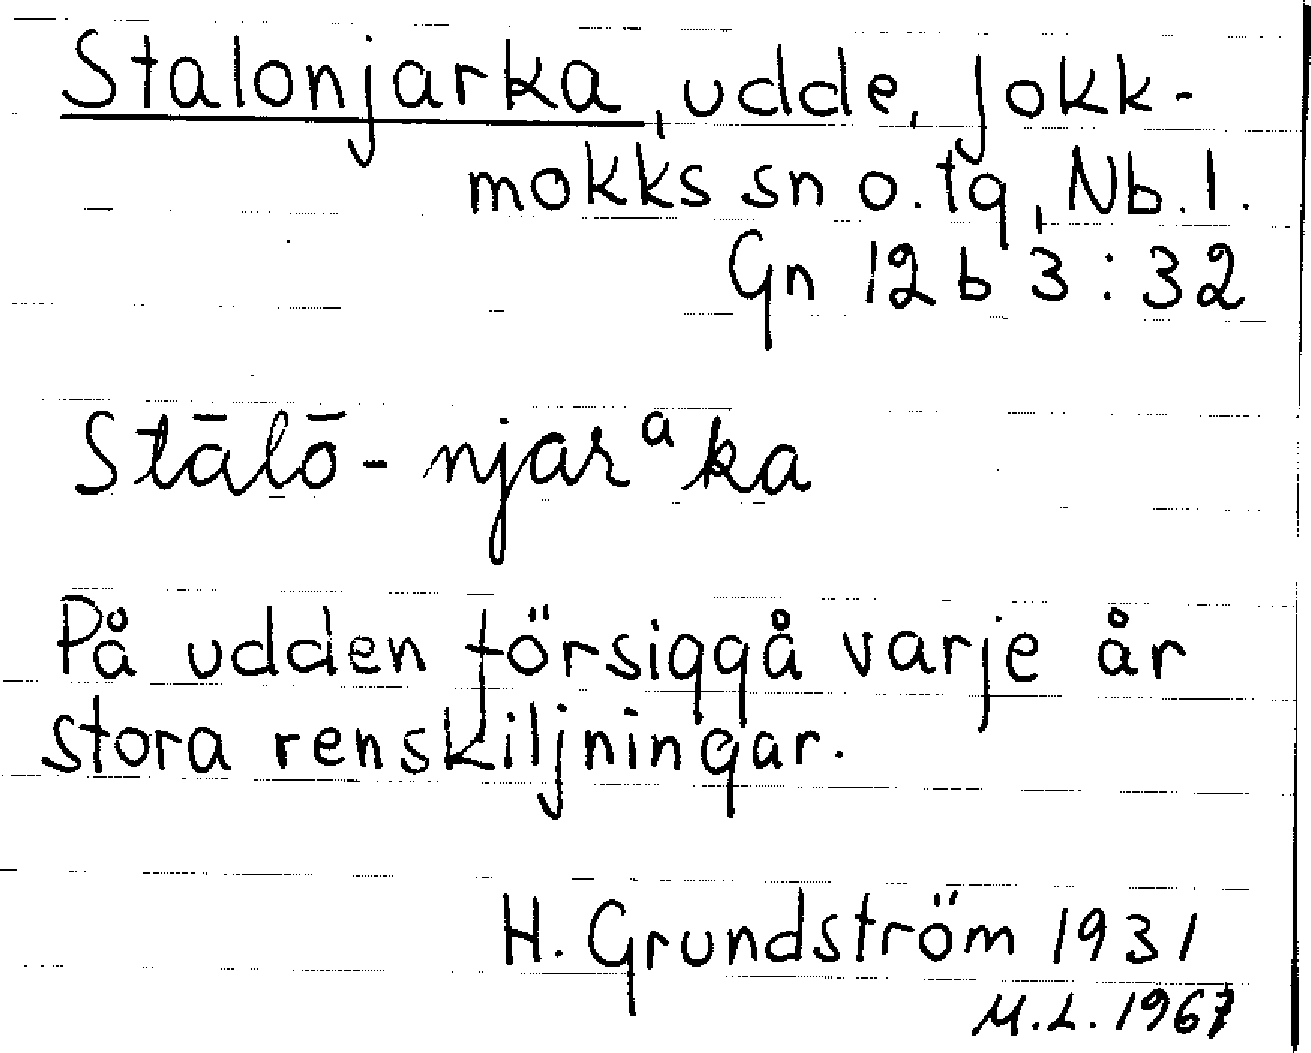 Stalonjarka, udde, Jokk-
mokks sn o. tg, Nb. l.
Gn 12 b 3 : 32
Stālō - njarᵃka
På udden försiggå varje år
stora renskiljningar.
H. Grundström 1931
M.L. 1967